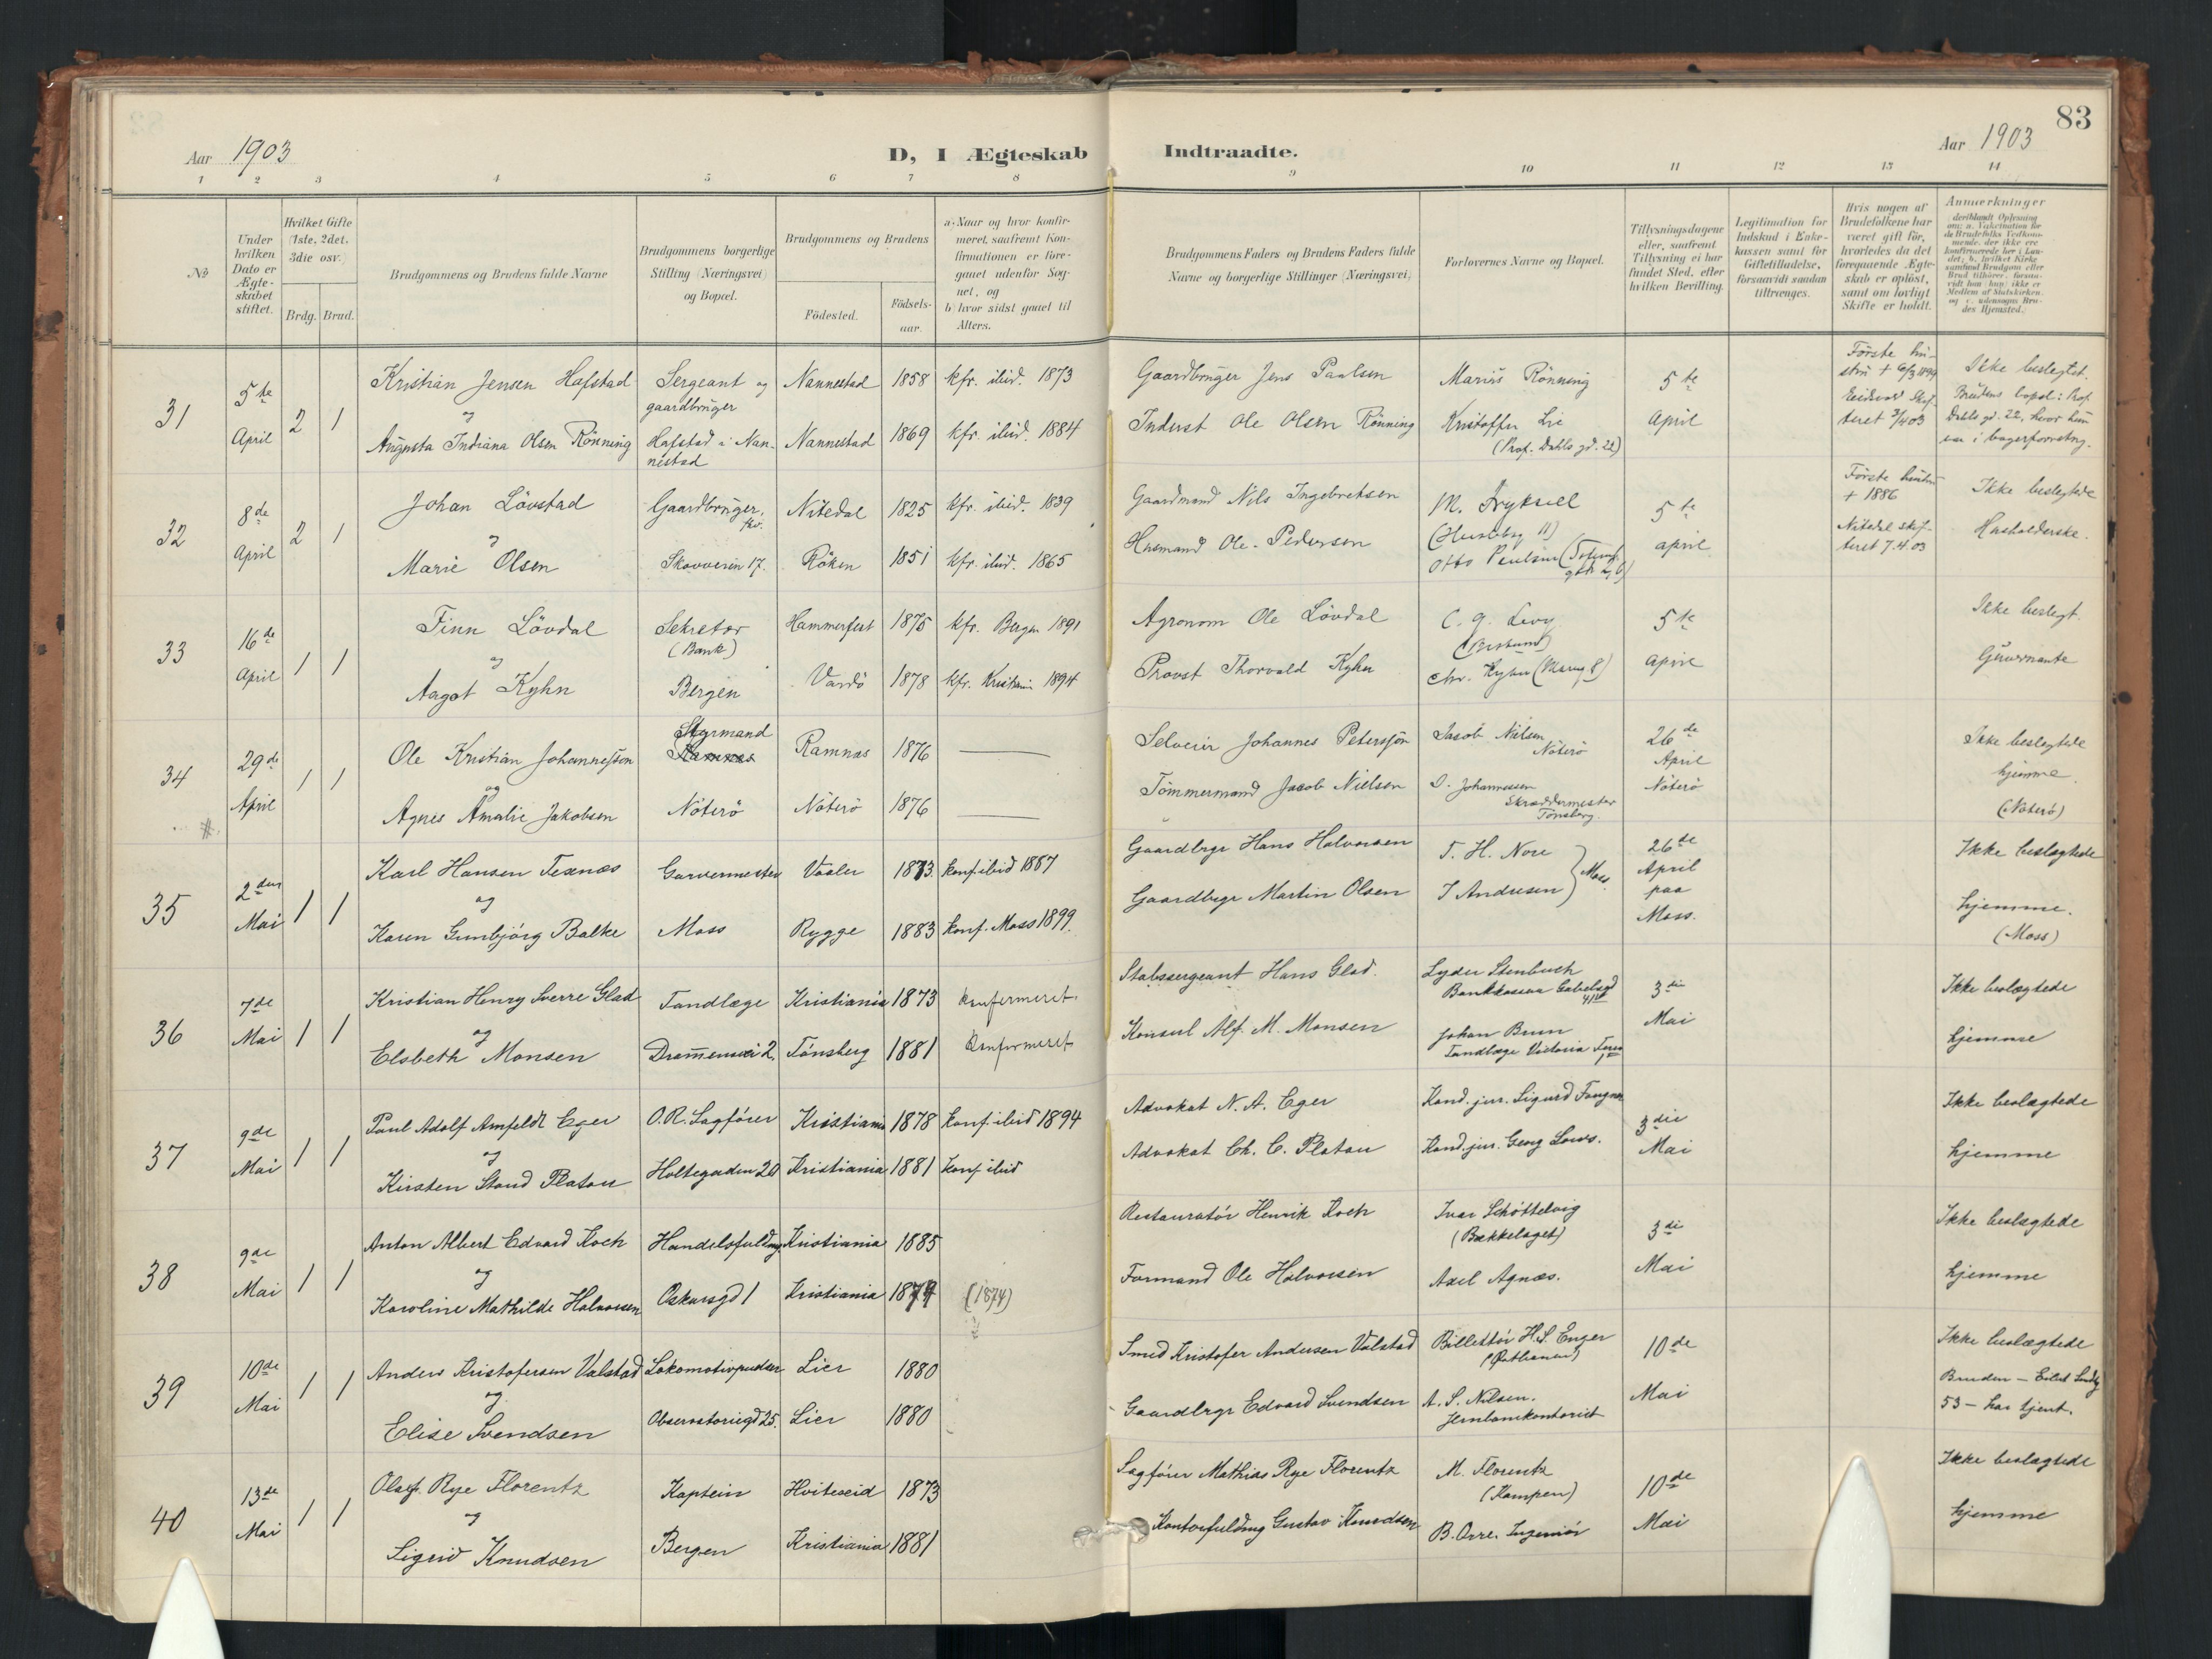 83
Aar 1903
D, I Ægteskab Indtraadte.
Aar 1903
1 2 3 4 5 6 7 8 9 10 11 12 13 14
No
Under hvilken Dato er Ægteskabet stiftet.
Hvilket Gifte (1ste, 2det, 3die osv.)
Brdg. Brud.
Brudgommens og Brudens fulde Navne
Brudgommens borgerlige Stilling (Næringsvei) og Bopæl.
Brudgommens og Brudens
Födested.
Födselsaar.
a) Naar og hvor konfirmeret, saafremt Konfirmationen er foregaaet udenfor Sognet, og
b) hvor sidst gaaet til Alters.
Brudgommens Faders og Brudens Faders fulde Navne og borgerlige Stillinger (Næringsvei)
Forlovernes Navne og Bopæl.
Tillysningsdagene eller, saafremt Tillysning ei har fundet Sted, efter hvilken Bevilling.
Legitimation for Indskud i Enkekassen samt for Giftetilladelse, forsaavidt saadan tiltrænges.
Hvis nogen af Brudefolkene har været gift för, hvorledes da det foregaaende Ægteskab er oplöst, samt om lovligt Skifte er holdt.
Anmerkninger
31
5te April
2 1
Kristian Jensen Hafstad
og
Augusta Indiana Olsen Rönning
Sergeant og
gaardbruger
Hafstad i Nannestad
Nannestad 1858 kfr. ibid. 1873
Nannestad 1869 kfr. ibid. 1884
Gaardbruger Jens Paulsen
Inderst Ole Olsen Rönning
Marius Rönning
Kristoffer Lie
(Prof. Dahls gd. 22)
5te
April
Förste hustru + 6/3 1899
Eidsvold
Ikke beslegtet.
Brudens bopæl: Prof.
Dahls gd. 22, hvor hun
32
8de April
2 1
Johan Lövstad
og
Marie Olsen
Gaardbruger,
Skovveien 17.
Nitedal 1825 kfr. ibid. 1839
Röken 1851 kfr. ibid. 1865
Gaardmand Nils Ingebretsen
Husmand Ole Pedersen
Otto Paulsen
5te
april
Förste hustru
+ 1886
Nitedal skif-
teret 7.4.03
Ikke beslegtede
Husholderske.
33
16de April
1 1
Finn Lövdal
og
Aagot Kyhn
Sekretær
(Bank)
Bergen
Hammerfest 1875 kfr. Bergen 1891
Vardö 1878 kfr. Kristiania 1894
Agronom Ole Lövdal
Provst Thorvald Kyhn
C. G. Levy
Chr. Kyhn
5te
april
Ikke beslegt.
Guvernante
34
29de April
1 1
Ole Kristian Johannesson
og
Agnes Amalie Jakobsen
Styrmand
Ramnæs
Nöterö
Ramnæs 1876
Nöterö 1876
Selveier Johannes Petersson
Tömmermand Jacob Nielsen
Jacob Nielsen
Nöterö
O. Johannessen
Skræddermester
Tönsberg.
26de
April
Nöterö
Ikke beslegtede
hjemme.
(Nöterö)
35
2den Mai
1 1
Karl Hansen Texnæs
og
Karen Gunbjörg Balke
Garvermester
Moss
Vaaler 1873. konf. ibid 1887
Rygge 1883 konf. Moss 1899.
Gaardbrgr Hans Halvorsen
Gaardbrgr Martin Olsen
T. H. Nore
J Andresen
Moss
26de
April
paa
Moss.
Ikke beslægtede
hjemme.
(Moss)
36
7de Mai
1 1
Kristian Henry Sverre Glad
og
Elsbeth Monsen
Tandlæge
Drammensvei 2.
Kristiania 1873 konfirmeret
Tönsberg 1881 konfirmeret
Stabssergeant Hans Glad.
Konsul Alf. M. Monsen
Lyder Stenbuch
Johan Brun
Tandlæge Victoria Terr.
3die
Mai
Ikke beslægtede
hjemme
37
9de Mai
1 1
Paul Adolf Amfeldt Eger
og
Kirsten Stoud Platou
O. R. Sagförer
Holtegaden 20
Kristiania 1878 konf. ibid 1894
Kristiania 1881 konf ibid
Advokat N. A. Eger
Advokat Ch. C. Platou
Kand. jur. Sigurd Fougner
Kand. jur. Georg Lous.
3die
Mai
Ikke beslægtede
hjemme
38
9de Mai
1 1
Anton Albert Edvard Koch
og
Karoline Mathilde Halvorsen
Handelsfuldmg
Oskarsgd 1
Kristiania 1885
Kristiania 1874 (1874)
Restauratör Henrik Koch
Formand Ole Halvorsen
Ivar Schöttelvig
(Bækkelaget)
Axel Agnæs.
3die
Mai
Ikke beslægtede
hjemme
39
10de Mai
1 1
Anders Kristofersen Valstad
og
Elise Svendsen
Lokomotivpudser
Observatoriegd 25.
Lier 1880
Lier 1880
Smed Kristofer Andersen Valstad
Gaardbrgr Edvard Svendsen
Billettör H. S. Enger
A. S. Nilsen.
Jernbanekontoret
10de
Mai
Ikke beslægtede
Bruden – Eilert Sundtg
53 – har tjent.
40
13de Mai
1 1
Olaf Rye Florentz
og
Sigrid Knudsen
Kaptein
Bergen
Hviteseid 1873
Kristiania 1881
Sagförer Mathias Rye Florentz
Kontorfuldmg Gustav Knudsen
M. Florentz
(Kampen)
B. Orre. Ingeniör
10de
Mai
Ikke beslægtede
hjemme